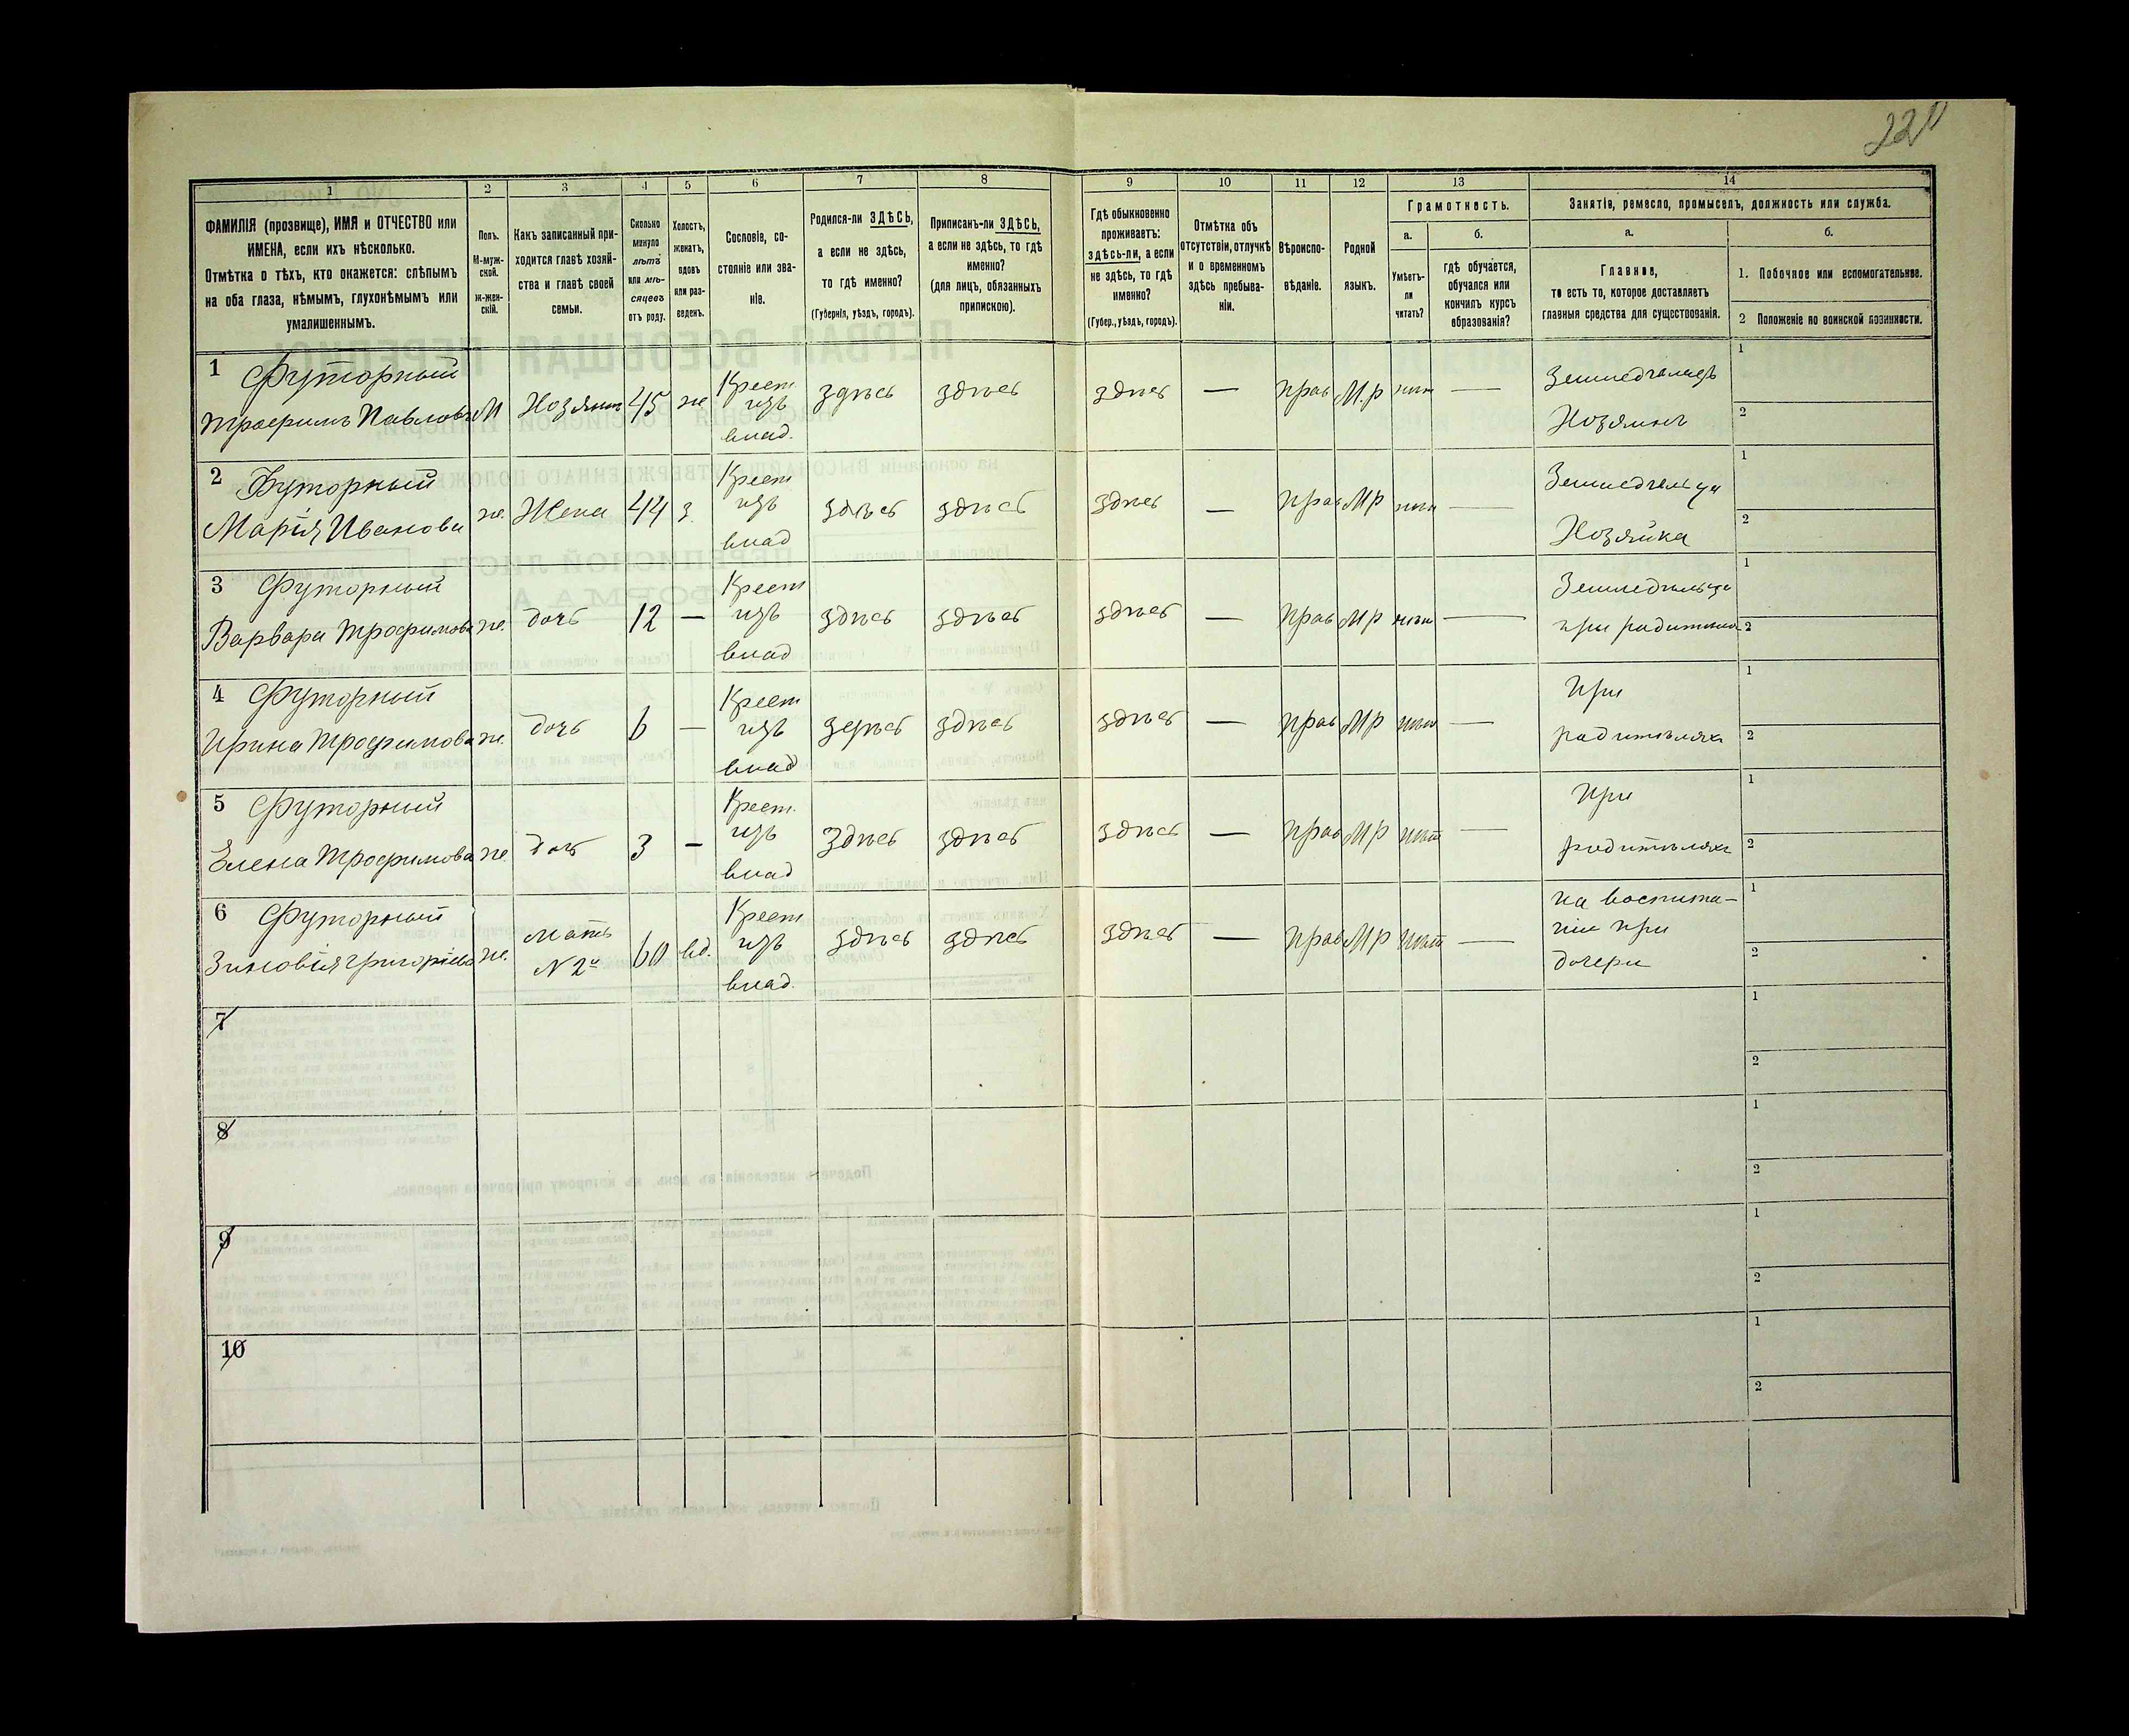 220
1 2 3 4 5 6 7 8 9 10 11 12 13 14
ФАМИЛІЯ (прозвище), ИМЯ и ОТЧЕСТВО или
ИМЕНА, если ихъ нѣсколько.
Отмѣтка о тѣхъ, кто окажется: слѣпымъ
на оба глаза, нѣмымъ, глухонѣмымъ или
умалишеннымъ.
Полъ.
М-муж-
ской.
Ж-жен-
скій.
Какъ записанный при-
ходится главѣ хозяй-
ства и главѣ своей
семьи.
Сколько
минуло
лѣтъ
или мѣ-
сяцевъ
отъ роду.
Холостъ,
женатъ,
вдовъ
или раз-
веденъ.
Сословіе, со-
стояніе или зва-
ніе.
Родился-ли ЗДѢСЬ,
а если не здѣсь,
то гдѣ именно?
(Губернія, уѣздъ, городъ).
Приписанъ-ли ЗДѢСЬ,
а если не здѣсь, то гдѣ
именно?
(для лицъ, обязанныхъ
припискою).
Гдѣ обыкновенно
проживаетъ:
здѣсь-ли, а если
не здѣсь, то гдѣ
именно?
(Губер., уѣздъ, городъ).
Отмѣтка объ
отсутствіи, отлучкѣ
и о временномъ
здѣсь пребыва-
ніи.
Вѣроиспо-
вѣданіе.
Родной
языкъ.
Грамотность.
а.
Умѣетъ-
ли
читать?
б.
гдѣ обучается,
обучался или
кончилъ курсъ
образованія?
Занятіе, ремесло, промыселъ, должность или служба.
а.
Главное,
то есть то, которое доставляетъ
главныя средства для существованія.
б.
1. Побочное или вспомогательное.
2 Положеніе по воинской повинности.
1 Футорный
Трофимъ Павловъ М Хозяинъ 45 же Крест изъ влад. здѣсь здѣсь здѣсь — прав М.р нѣт — Земледѣлецъ Хозяинъ 1 2
2 Футорный
Марія Иванова же. Жена 44 з. Крест изъ влад здѣсь здѣсь здѣсь — прав М р нѣт — Земледѣльца Хозяйка 1 2
3 Футорный
Варвара Трофимова же. дочь 12 — Крест изъ влад здѣсь здѣсь здѣсь — прав М р нѣт — Земледѣльца при родителя 1 2
4 Футорный
Ирина Трофимова же. дочь 6 — Крест изъ влад здѣсь здѣсь здѣсь — прав М р нѣт — При родителяхъ 1 2
5 Футорный
Елена Трофимова же. дочь 3 — Крест. изъ влад здѣсь здѣсь здѣсь — прав М р нѣт — При родителяхъ 1 2
6 Футорный
Зиновія Григоріева же. мать N 2й 60 вд. Крест изъ влад. здѣсь здѣсь здѣсь — прав М р нѣт — на воспита-
ніи при
дочери 1 2
7 1 2
8 1 2
9 1 2
10 1 2